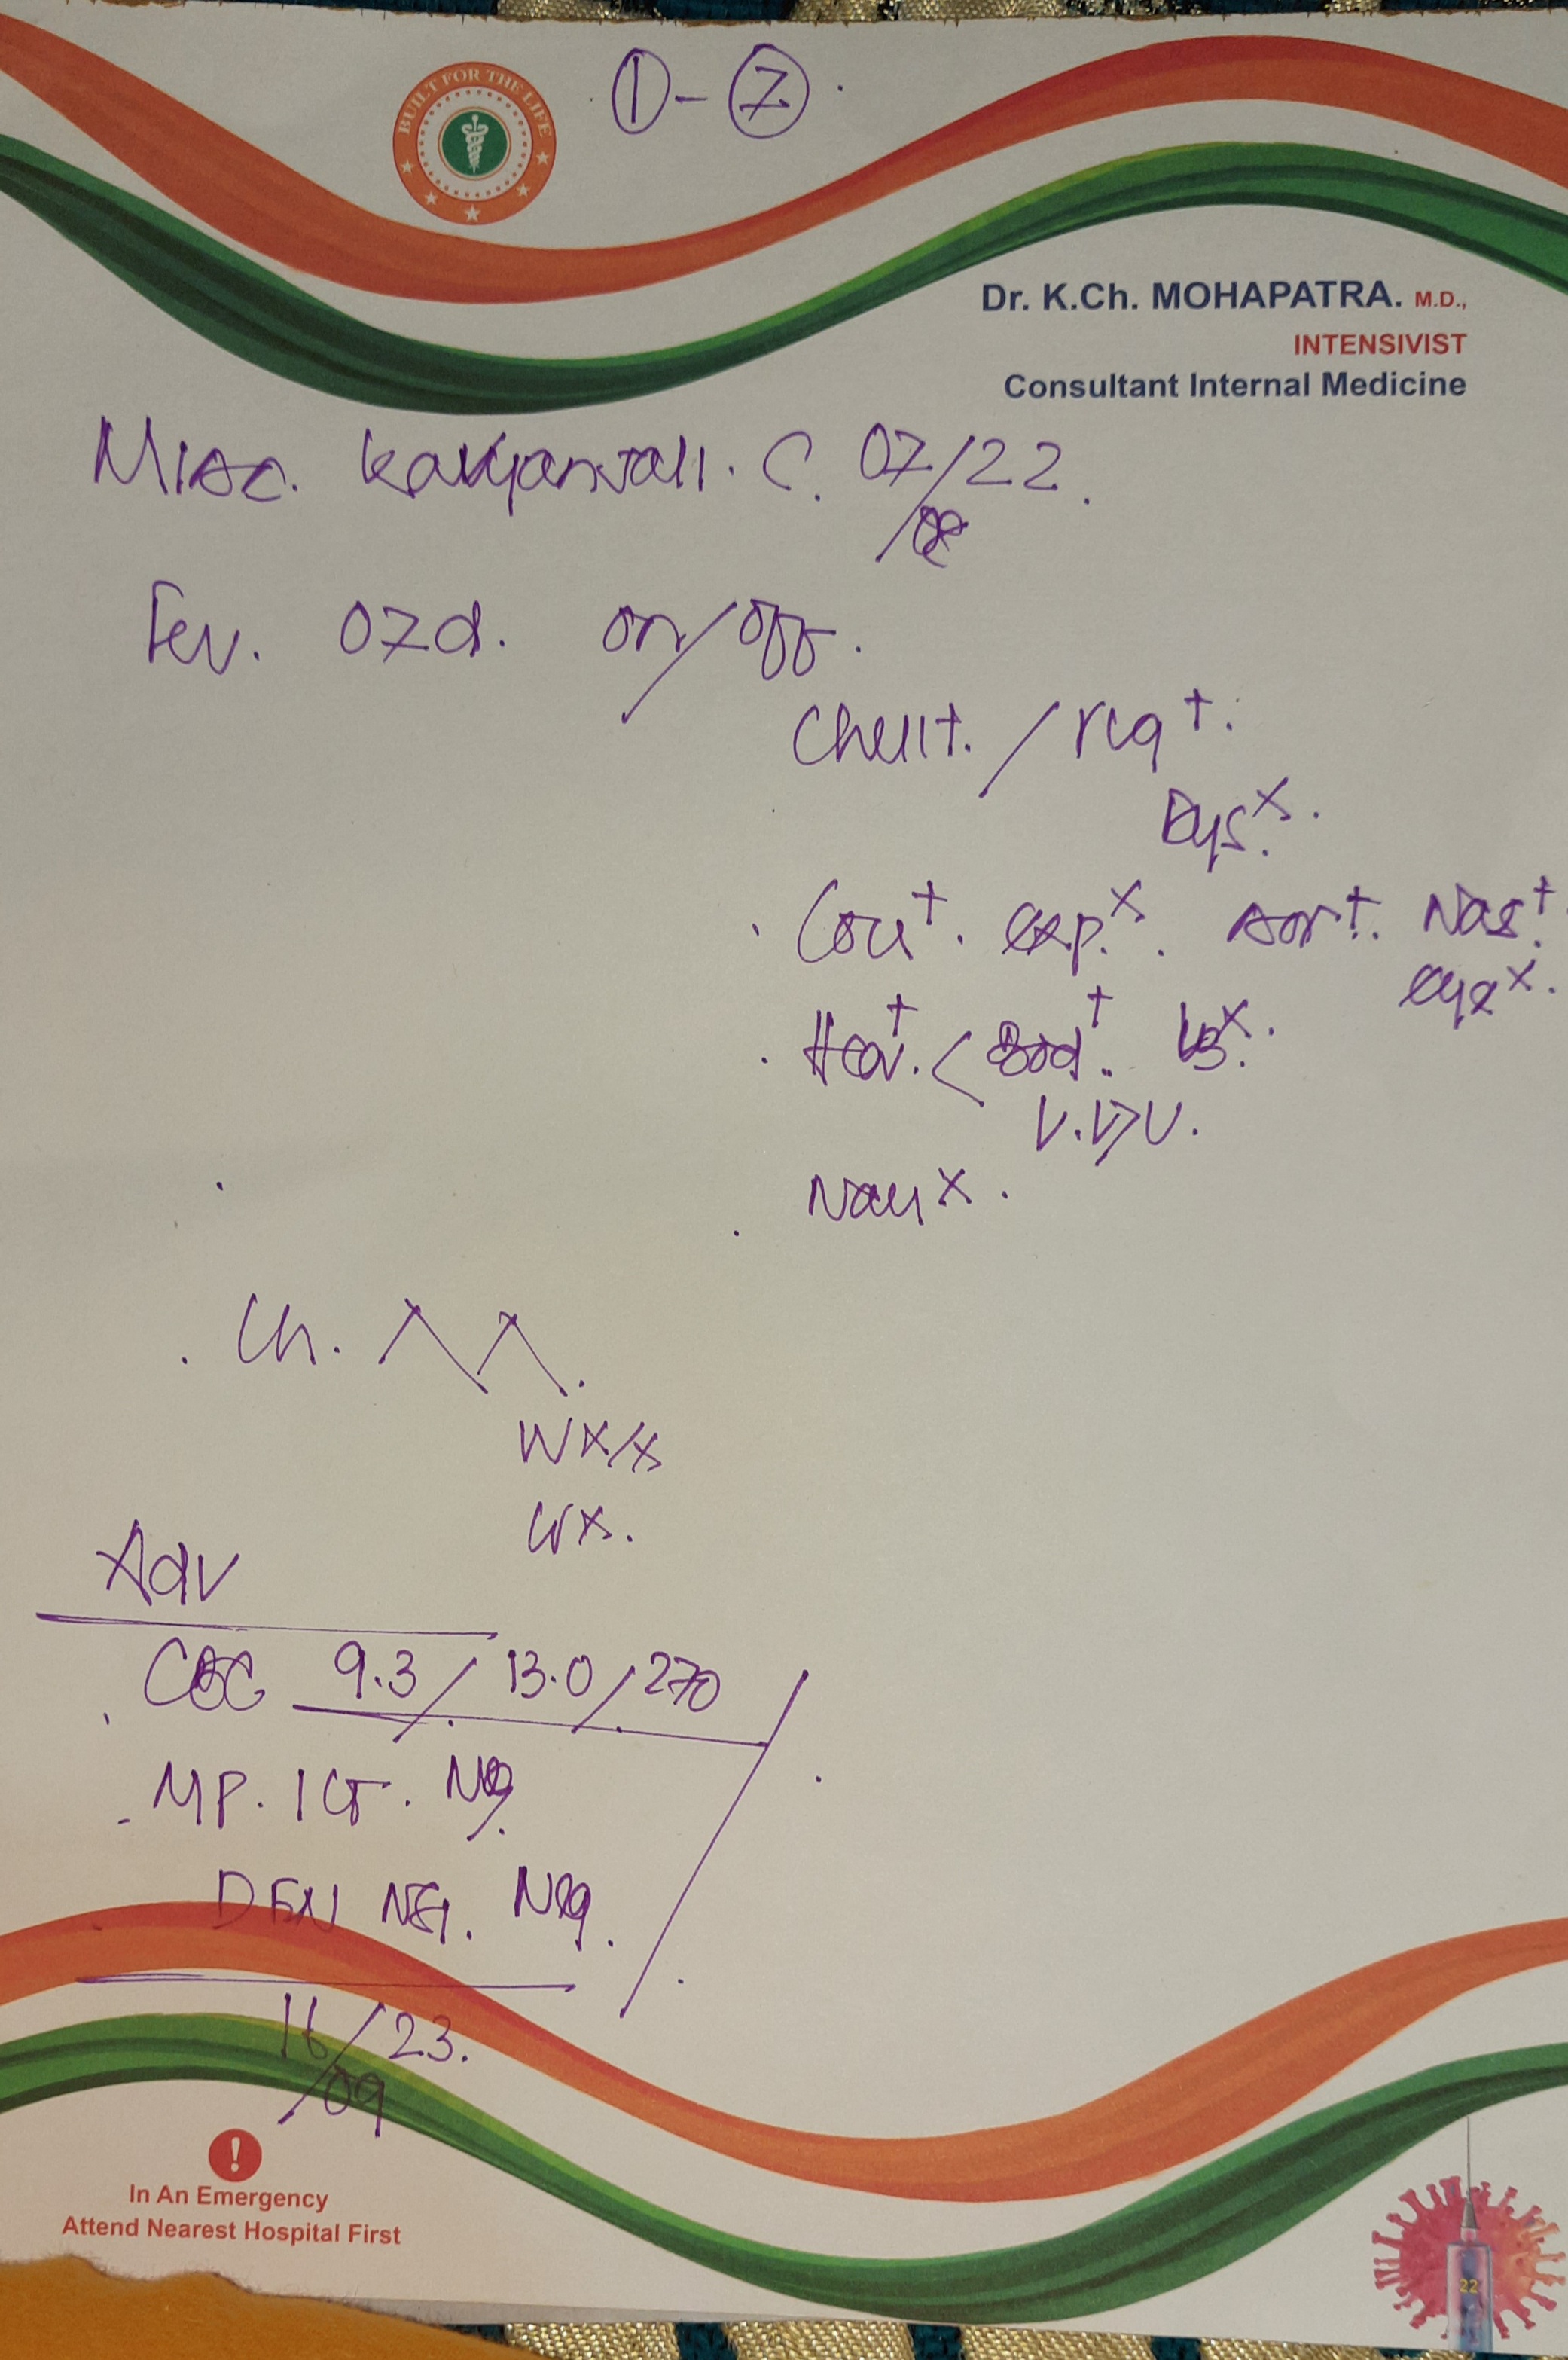 BUILT FOR THE LIFE
① - ⑦.
Dr. K.Ch. MOHAPATRA. M.D.,
INTENSIVIST
Consultant Internal Medicine
C. 07/22.
Fev. 07d. on/off.
Chill+. /
Dys.x.
Cou+. exp.x. Sor+. Nas+.
eye x.
Hea+. < Bod+.
Nau x.
Ch.
W x/x
Cr x.
Adv
CBC 9.3/13.0/270
MP. ICT. Neg.
DEN NS1. Neg.
16/23.
/09
In An Emergency
Attend Nearest Hospital First
22